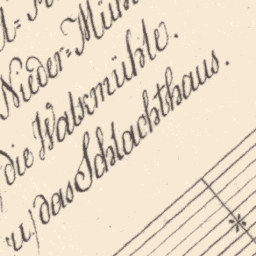 Nieder=Mühl
die Walkmühle.
u/ das Schlachthaus.